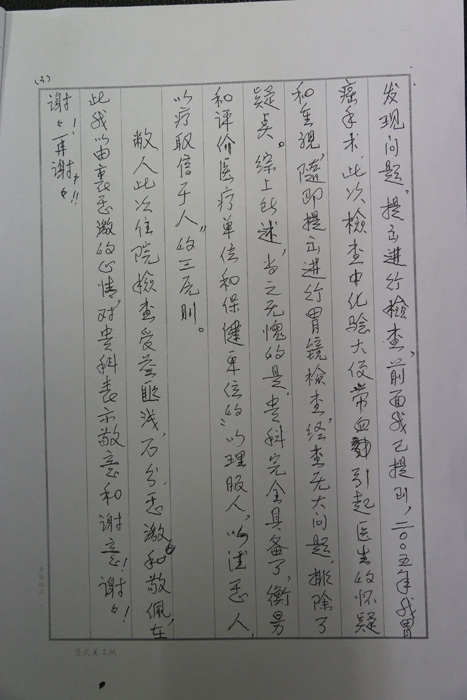 (3)
发现问题，提出进行检查，前面我已提到，二〇〇五年我胃
癌手术，此次检查中化验大便带血引起医生的怀疑
和重视，随即提出进行胃镜检查，经查无大问题，排除了
疑点。综上所述，当之无愧的是，贵科完全具备了，衡量
和评价医疗单位和保健单位的“以理服人，以诚感人，
以疗取信于人”的三原则。
敝人此次住院检查受益匪浅，万分感激和敬佩，在
此我以由衷感激的心情，对贵科表示敬意和谢意！谢々！
谢々！再谢々！！